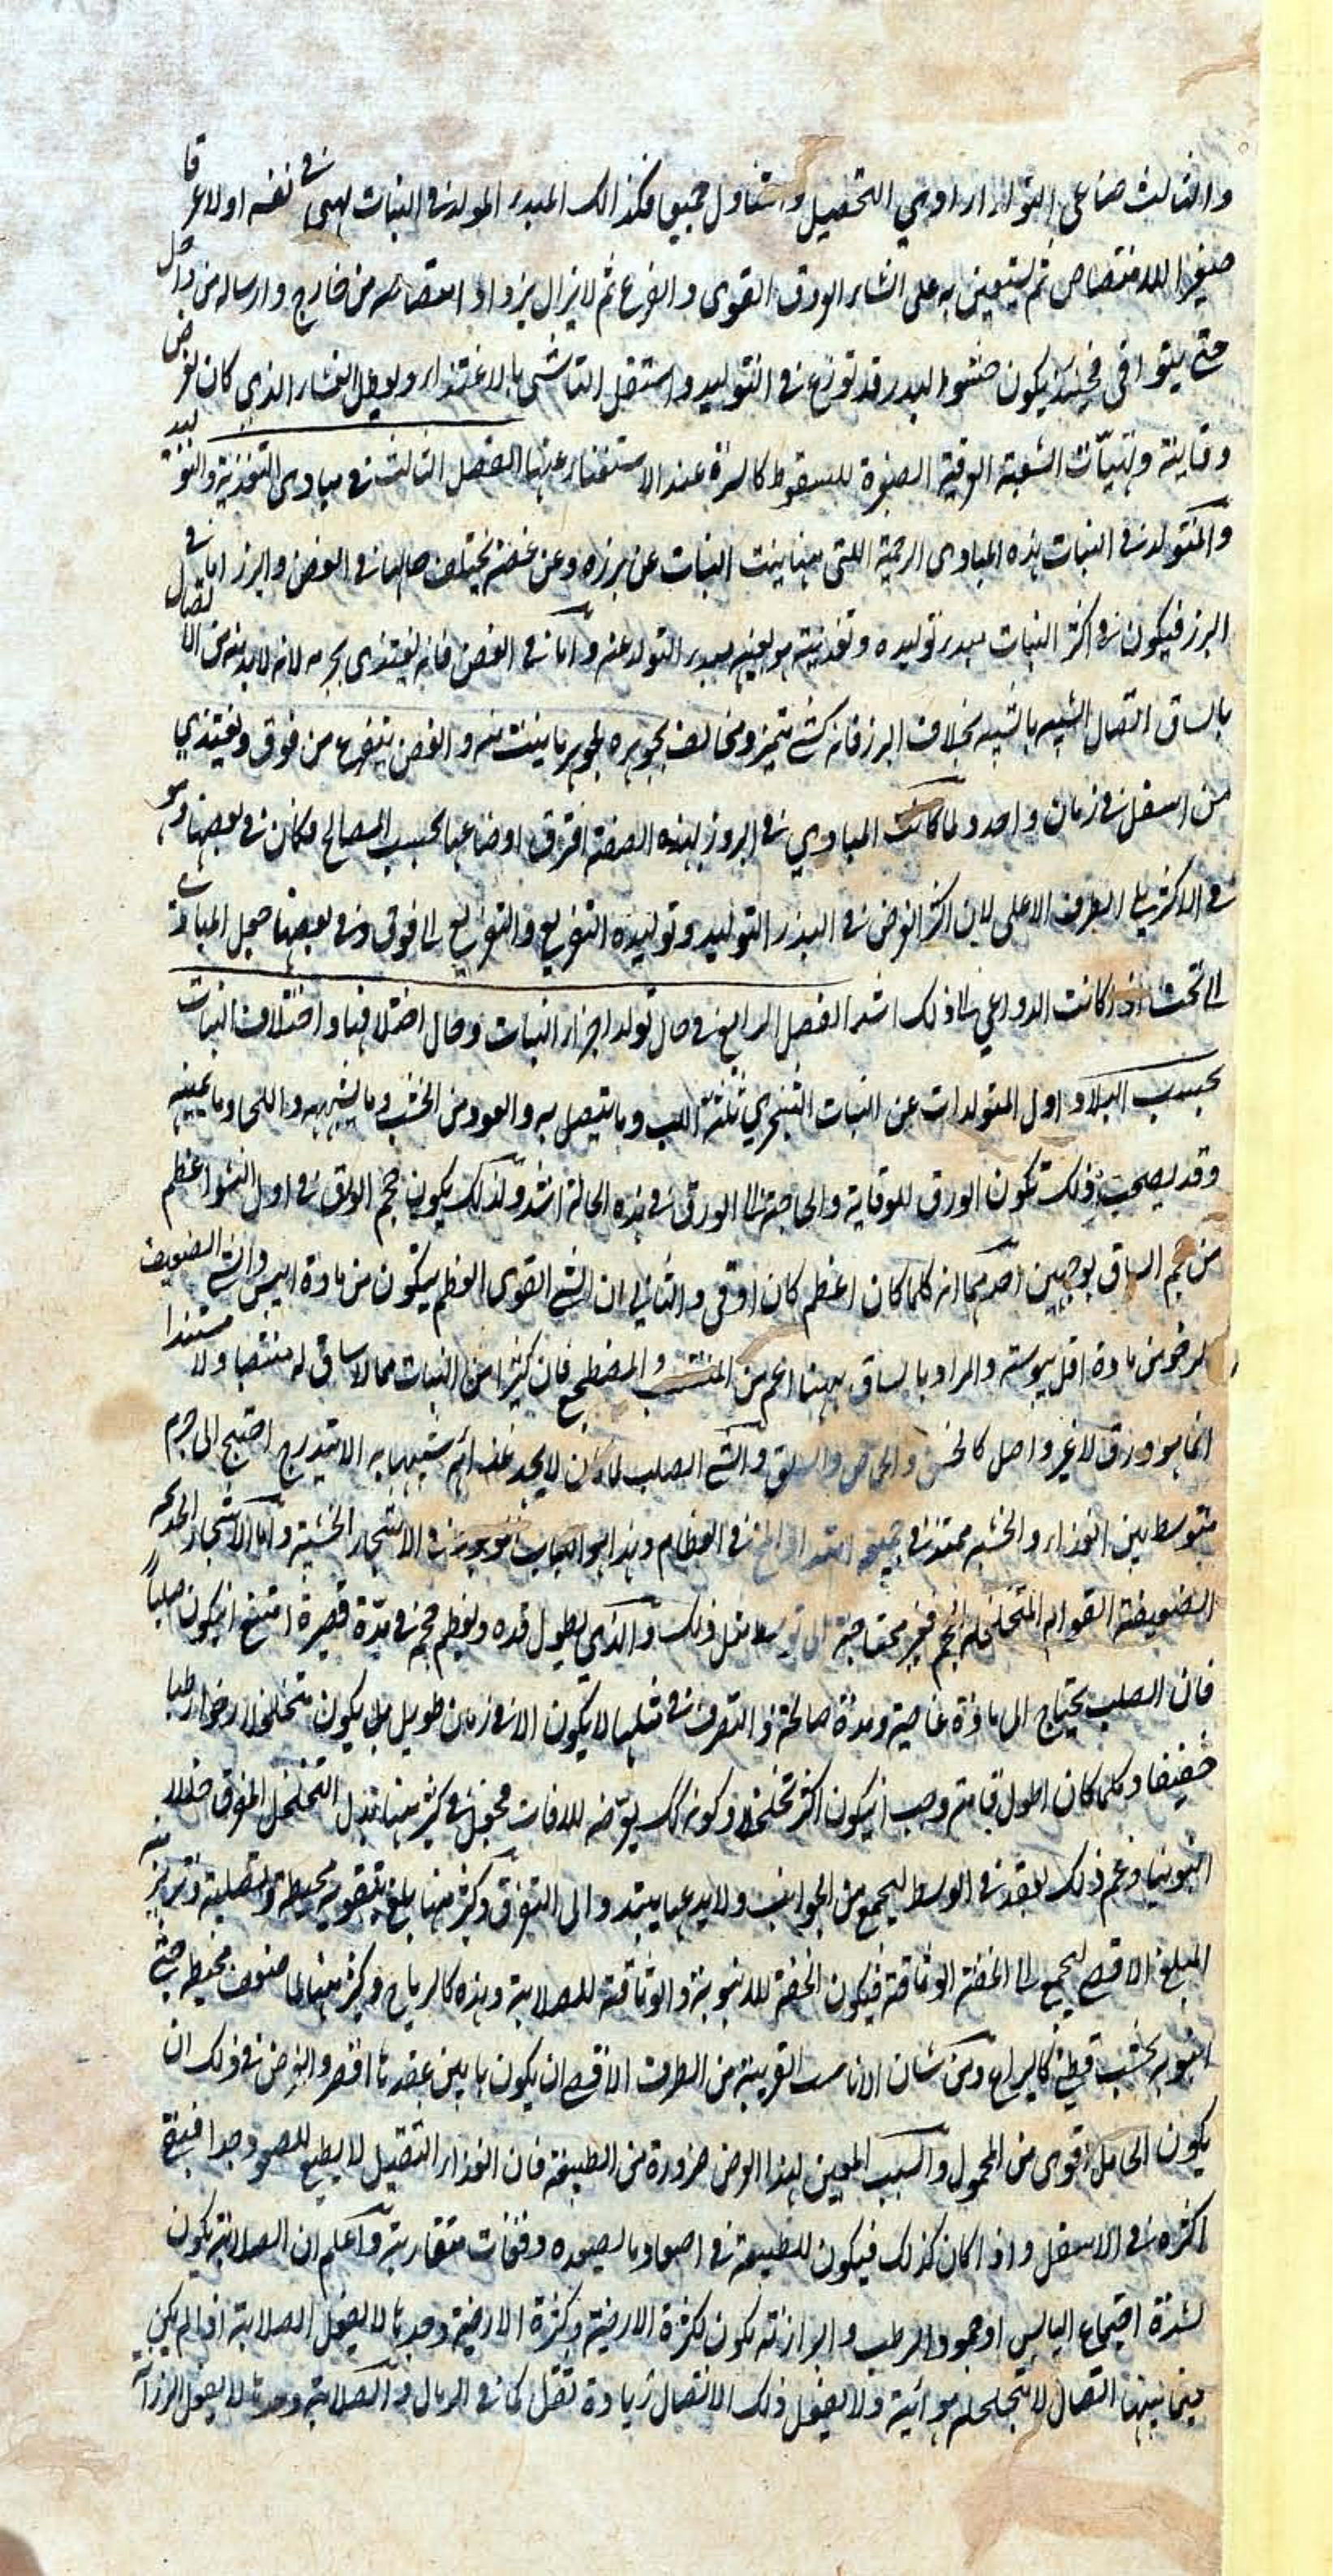 والثالث صناعي التولد اراوي التحصيل وتتناول جميع فكذالك المبدء المولد في النبات يهيئ في نفسه اولا عرقا
صغيرا للامتصاص ثم يستعين به على انشاء الورق القوى والفرع ثم لا يزال يزداد امتصاصه من خارج وارساله من داخل
حتى يتوافى فحينئذ يكون حشو البدر قد توزع في التوليد واستقل الناشى بالاغتذاء وبطل الغشاء الذي كان لغرض
وقاية وتهيأت الشعبة الوقية الصغيرة للسقوط كالسرة عند الاستغناء عنها الفصل الثالث في مبادى التغذية والتوليد
والمتولد في النبات هذه المبادى الرحمية اللتى منها ينبت النبات عن بزره وعن غصنه يختلف حالها في الغصن والبزر اما في
البزر فيكون في اكثر النبات مبدء توليده وتغذيته هو بعينه مبدء التولد عنه واما في الغصن فانه يغتذى بجرمه لانه لابد منه من الاتصال
بالساق اتصال الشبيه بالشبيه بخلاف البزر فانه كشئ متميز ومخالف بجوهره لجوهر ما ينبت منه والغصن يتفرع من فوق ويغتذي
من اسفل في زمان واحد ولما كانت المبادي في البروز بهذه الصفة افترق اوضاعها بحسب المصالح فكان في بعضها وهو
في الاكثر يلى الطرف الاعلى لان اكثر الغرض في البذر التوليد وتوليده التفريع والتفريع الى فوق وفي بعضها جعل المبادى
الى تحت اذا كانت الدواعي الى ذلك اشد الفصل الرابع في حال تولد اجزاء النبات وحال اختلافها واختلاف النبات
بحسب البلاد اول المتولدات عن النبات الشجري ثلثة اللب وما يتصل به والعود من الخشب وما يشبهه واللحا وما يعينه
وقد يصحب ذلك تكون الورق للوقاية والحاجة الى الورق في هذه الحالة اشد ولذلك يكون حجم الورق في اول النشو اعظم
من حجم الساق بوجهين احدهما انه كلما كان اعظم كان اوقى والثاني ان الشئ القوى العظم يتكون من مادة ايبس والشئ الضعيف
الرخو من مادة اقل يبوسة والمراد بالساق ههنا اعم من المنتصب والمضطجع فان كثيرا من النبات مما لا ساق له منتصبا ولا مستندا
انما هو ورق لا غير واصل كالخس والحماض والسلق والشئ الصلب لما كان لا يجد غذائهم شبيها به الا بتدرج احتيج الى جرم
متوسط بين الغذاء والخشبة ممتد في جميعه امتداد المخ في العظام وهذا هو اللباب الموجود في الاشجار الخشبية واما الاشجار
الضعيفة القوام المتخلخلة الحجم فغير محتاجة الى توسط مثل ذلك والذي يطول قده ويعظم حجمه في مدة قصيرة امتنع ان يكون صلبا
فان الصلب يحتاج الى مادة عاصية ومدة صالحة والتصرف في مثلها لا يكون الا في زمان طويل بل يكون متخلخلا رخوا رطبا
خفيفا وكلما كان اطول قامة وجب ان يكون اكثر تخلخلا وكونه كك يعرضه للافات فجعل في كثير منها بدل التخلخل المفرق خللا
انبوبيا وعم ذلك بعقد في الوسط ليجمع من الجوانب ولا يدعها يتبدد الى التفرق وكثير منها بلغ بتقوية محيطه وتصليبه وتربز منه
المبلغ الاقصى ليجمع الى الخفة الوثاقة فيكون الخفة للانبوبة والوثاقة للصلابة وهذه كالرماح وكثير منها لما ضعف محيطه حشى
انبوبه بخشب قطني كاليراع ومن شان الانابيب القريبة من الطرف الاقصى ان يكون ما بين عقدتها اقصر والغرض في ذلك ان
يكون الحامل اقوى من المحمول والسبب المعين لهذا الغرض ضرورة من الطبيعة فان الغذاء الثقيل لا يطيع للصعود جدا فيبقى
اكثره في الاسفل واذا كان كذلك فيكون للطبيعة في اصعاد ما يصعده وقفات متقاربة واعلم ان الصلابة يكون
لشدة اجتماع اليابس او جمود الرطب والرزانة تكون لكثرة الارضية وكثرة الارضية وحدها لا يفعل الصلابة اذا لم يكن
فيما بينها اتصال لا يتخلله هوائية ولا يفعل ذلك الاتصال زيادة ثقل كما في الرمال والصلابة وحدها لا يفعل الرزانة